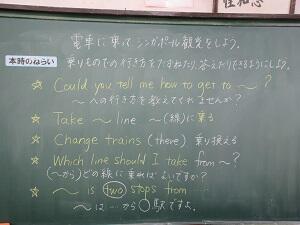 電車に乗って シンガポール観光をしよう。
本時のねらい 乗りものでの行き方をたずねたり、答えたりできるようにしよう。
☆ Could you tell me how to get to ～?
～への行き方を教えてくれませんか?
☆ Take ～ line ～(線)に乗る
☆ Change trains (there) 乗り換える
☆ Which line should I take from ～?
(～から)どの線に乗ればよいですか?
☆ ～ is two stops from …
～は …から ○駅ですよ。